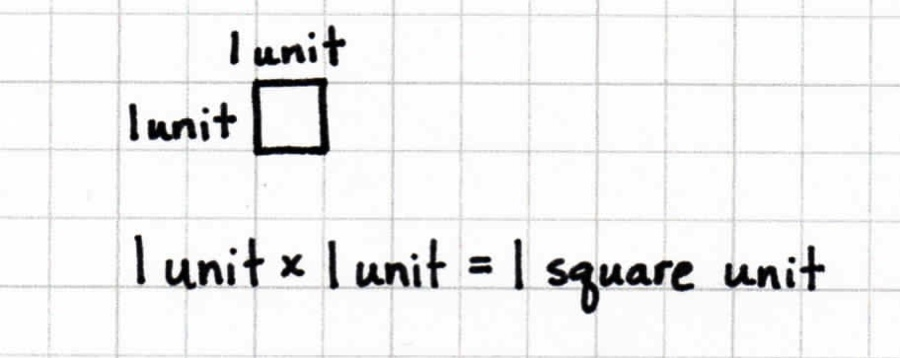 1 unit
1 unit
1 unit × 1 unit = 1 square unit